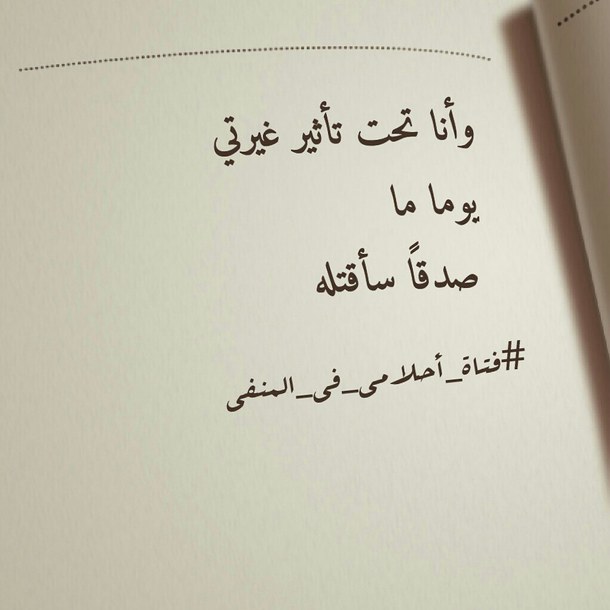 وأنا تحت تأثير غيرتي
يوما ما
صدقاً سأقتله
#فتاة_أحلامى_فى_المنفى